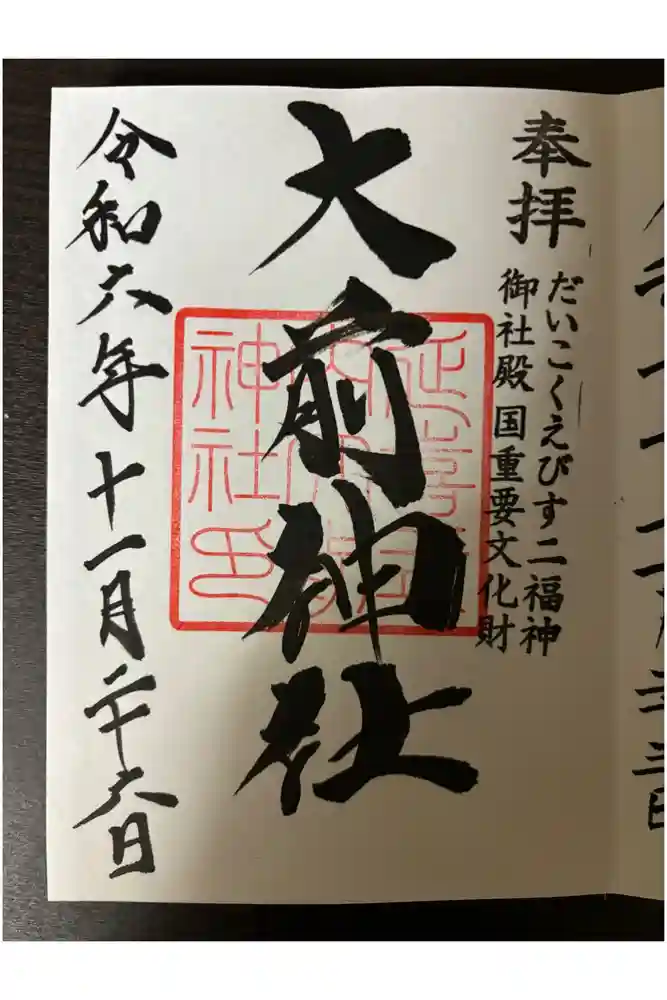 奉拝
だいこくえびす二福神
御社殿 国重要文化財
大前神社
神社印
令和六年十一月二十六日